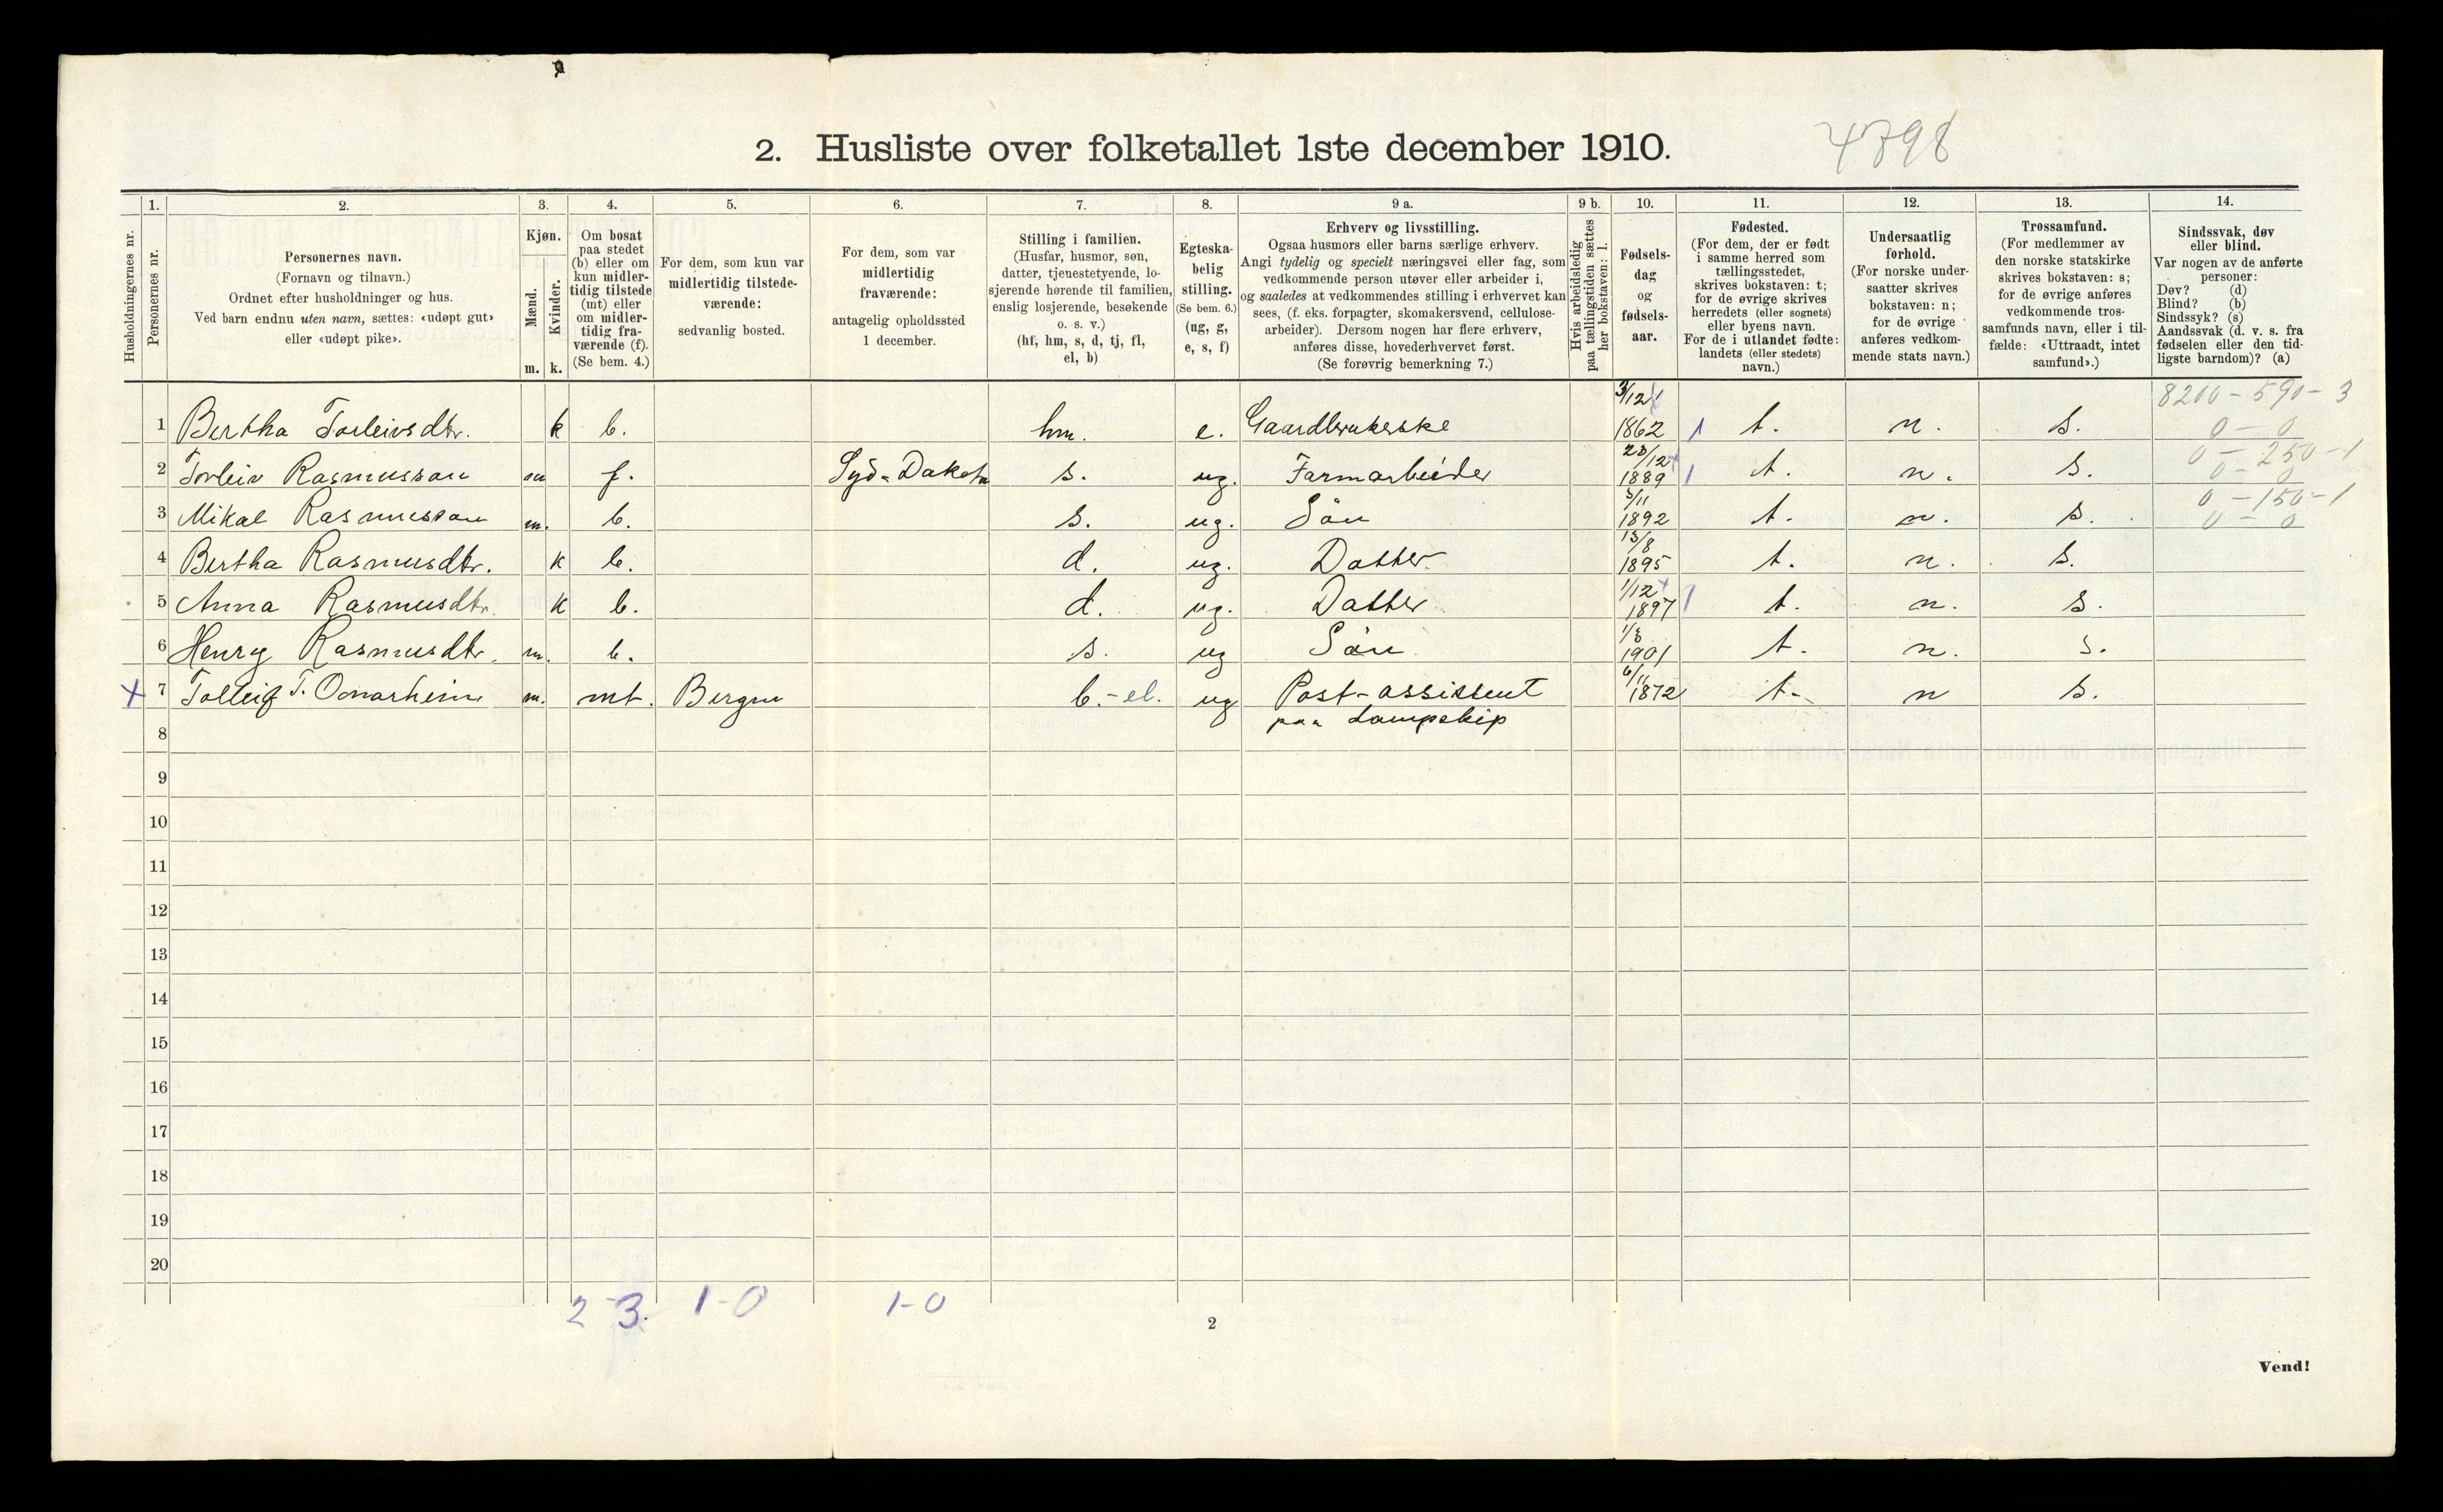 4798
2. Husliste over folketallet 1ste december 1910.
Husholdningernes nr.
1.
Personernes nr.
2.
Personernes navn.
(Fornavn og tilnavn.)
Ordnet efter husholdninger og hus.
Ved barn endnu uten navn, sættes: «udøpt gut»
eller «udøpt pike».
3.
Kjøn.
Mænd.
Kvinder.
m. k.
4.
Om bosat
paa stedet
(b) eller om
kun midler-
tidig tilstede
(mt) eller
om midler-
tidig fra-
værende (f).
(Se bem. 4.)
5.
For dem, som kun var
midlertidig tilstede-
værende:
sedvanlig bosted.
6.
For dem, som var
midlertidig
fraværende:
antagelig opholdssted
1 december.
7.
Stilling i familien.
(Husfar, husmor, søn,
datter, tjenestetyende, lo-
sjerende hørende til familien,
enslig losjerende, besøkende
o. s. v.)
(hf, hm, s, d, tj, fl,
el, b)
8.
Egteska-
belig
stilling.
(Se bem. 6.)
(ug, g,
e, s, f)
9 a.
Erhverv og livsstilling.
Ogsaa husmors eller barns særlige erhverv.
Angi tydelig og specielt næringsvei eller fag, som
vedkommende person utøver eller arbeider i,
og saaledes at vedkommendes stilling i erhvervet kan
sees, (f. eks. forpagter, skomakersvend, cellulose-
arbeider). Dersom nogen har flere erhverv,
anføres disse, hovederhvervet først.
(Se forøvrig bemerkning 7.)
9 b.
Hvis arbeidsledig
paa tællingstiden sættes
her bokstaven: l.
10.
Fødsels-
dag
og
fødsels-
aar.
11.
Fødested.
(For dem, der er født
i samme herred som
tællingsstedet,
skrives bokstaven: t;
for de øvrige skrives
herredets (eller sognets)
eller byens navn.
For de i utlandet fødte:
landets (eller stedets)
navn.)
12.
Undersaatlig
forhold.
(For norske under-
saatter skrives
bokstaven: n;
for de øvrige
anføres vedkom-
mende stats navn.)
13.
Trossamfund.
(For medlemmer av
den norske statskirke
skrives bokstaven: s;
for de øvrige anføres
vedkommende tros-
samfunds navn, eller i til-
fælde: «Uttraadt, intet
samfund».)
14.
Sindssvak, døv
eller blind.
Var nogen av de anførte
personer:
Døv? (d)
Blind? (b)
Sindssyk? (s)
Aandssvak (d. v. s. fra
fødselen eller den tid-
ligste barndom)? (a)
3/12 8200-590-3
1 Bertha Torleivsdtr. k b. hm. e. Gaardbrukerske 1862 1 t. n. s. 0-0
23/12 0-250-1
2 Torleiv Rasmusson m f. Syd-Dakota s. ug. Farmarbeider 1889 1 t. n. s. 0-0
3/11 0-150-1
3 Mikal Rasmusson m. b. s. ug. Sön 1892 t. n. s. 0-0
13/8
4 Bertha Rasmusdtr. k b. d. ug. Datter 1895 t. n. s.
1/12
5 Anna Rasmusdtr. k b. d. ug. Datter 1897 1 t. n. s.
1/3
6 Henry Rasmusdtr. m. b. s. ug Sön 1901 t. n. s.
6/11
x 7 T. Omarheim m. mt. Bergen b.-el. ug Post-assistent 1872 t. n s.
paa Dampskip
8
9
10
11
12
13
14
15
16
17
18
19
20
2-3. 1-0 1-0
2
Vend!